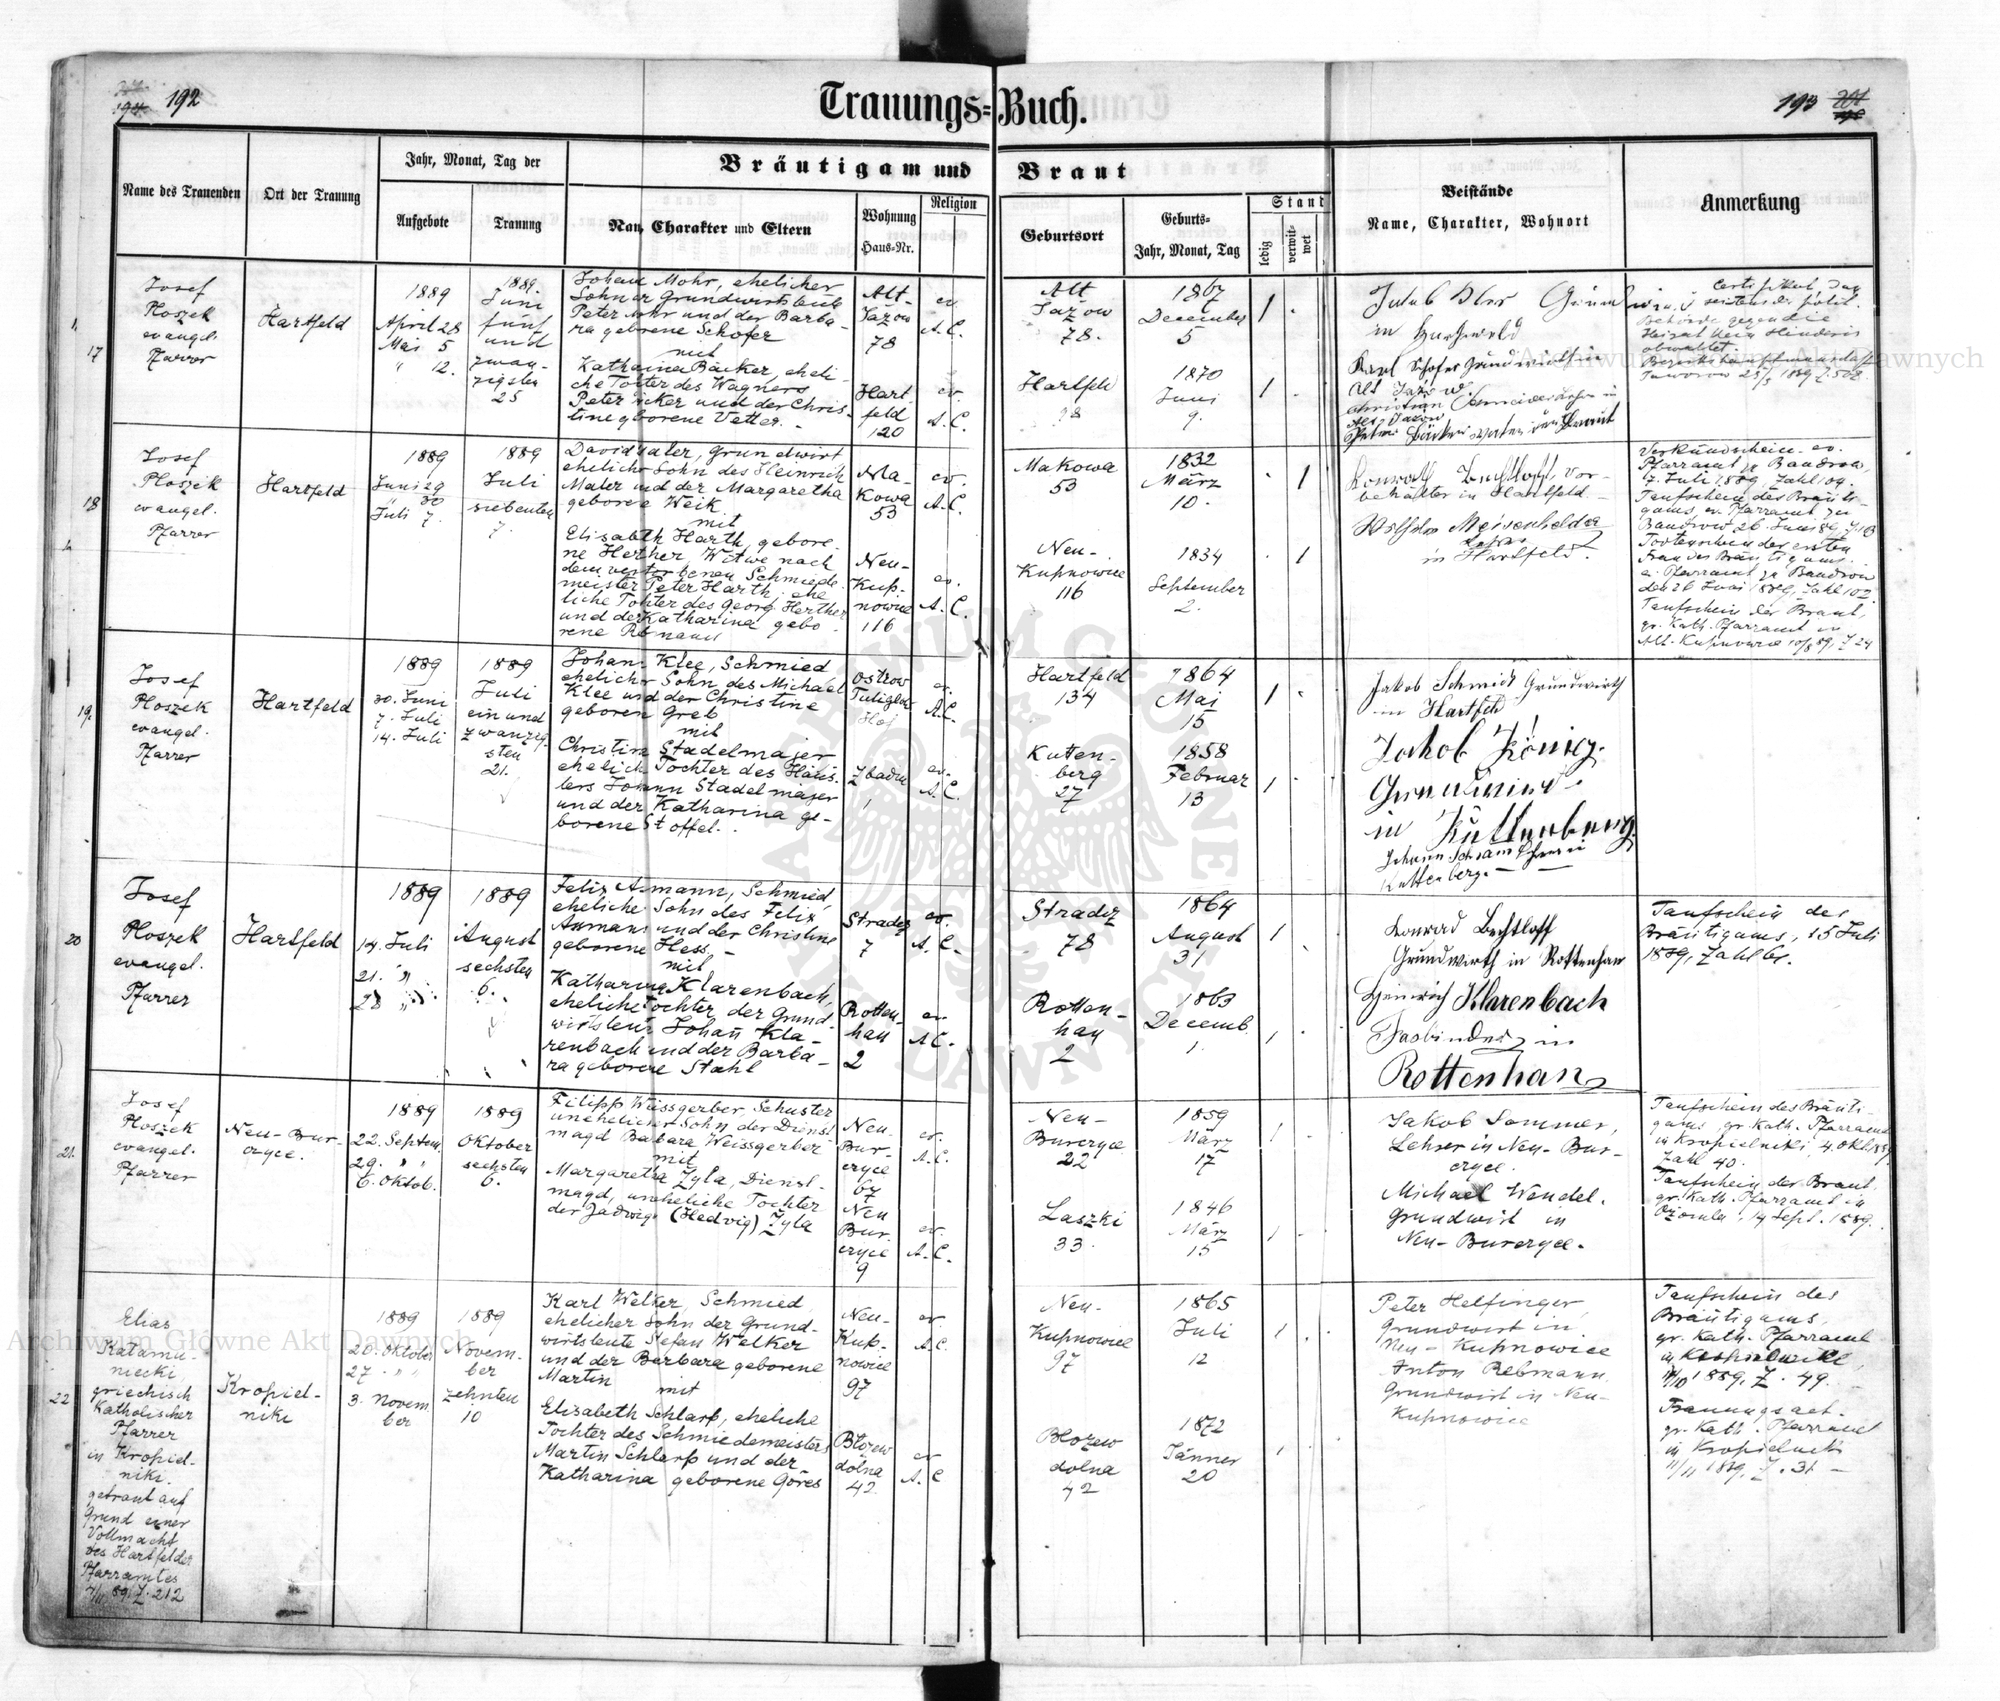 192
Trauungs=Buch.
193
Name des Trauenden
Ort der Trauung
Jahr, Monat, Tag der
Aufgebote
Trauung
Bräutigam und Braut
Name, Charakter und Eltern
Wohnung
Haus-Nr.
Religion
Geburtsort
Geburts-
Jahr, Monat, Tag
Stand
ledig
verwit-
wet
Beistände
Name, Charakter, Wohnort
Anmerkung
17
Josef
Ploszek
evangel.
Pfarrer
Hartfeld
1889
April 28
Mai 5
" 12.
1889.
Juni
fünf
und
zwan-
zigsten
25
Johann Mohr, ehelicher
Sohn der Grundwirtsleute
Peter Mohr und der Barba-
ra geborene Schofer
mit
Katharina Bäcker, eheli-
che Tochter des Wagners
Peter Bäcker und der Chris-
tine geborene Vetter.
Alt-
Jazow
78
ev.
A. C.
Hart-
feld
120
ev.
A. C.
Alt
Jazow
78.
1867
December
5
Hartfeld
1870
Juni
9.
Certifikat, daß
seitens der polit.
Behörde gegen die
Heirat kein Hinderniß
obwaltet.
18
Josef
Ploszek
evangel.
Pfarrer
Hartfeld
1889
Juni 29
30
Juli 7.
1889
Juli
siebenten
7.
David Maler, Grundwirt
ehelicher Sohn des Heinrich
Maler und der Margaretha
geborene Weik
mit
Elisabeth Harth, gebore-
ne Herther, Witwe nach
dem verstorbenen Schmiede-
meister Peter Harth, ehe-
liche Tochter des Georg Herther
und der Katharina gebo-
rene
Ma-
kowa
53
ev.
A. C.
Neu-
Kup-
nowice
116
ev.
A. C.
Makowa
53
1832
März
10.
Neu-
Kupnowice
116
1834
September
2.
Konrad Bechtloff, Vor-
in Hartfeld.
in Hartfeld.
Verkündschein ev.
Pfarramt zu Bandrow,
7. Juli 1889, Zahl 109.
Taufschein des Bräuti-
gams, ev. Pfarramt zu
Bandrow 26. Juni 89,
Todtenschein der ersten
Frau des Bräutigams.
ev. Pfarramt zu Bandrow
den 26 Juni 1889, Zahl 102.
Taufschein der Braut,
gr. kath. Pfarramt in
Alt-Kupnowice
19.
Josef
Ploszek
evangel.
Pfarrer
Hartfeld
1889
30. Juni
7. Juli
14. Juli
1889
Juli
ein und
zwanzig-
sten
21.
Johann Klee, Schmied
ehelicher Sohn des Michael
Klee und der Christine
geborene Greb
mit
Christine Stadelmajer
eheliche Tochter des Häus-
lers Johann Stadelmajer
und der Katharina ge-
borene Stoffel.
Ostrow
ev.
A. C.
Zbadin
ev.
A. C.
Hartfeld
134
1864
Mai
15
Kutten-
berg
27
1858
Februar
13
Jakob Schmidt Grundwirth
in Hartfeld
Jakob König
Grundwirth
in Kuttenberg.
Kuttenberg.
20
Josef
Ploszek
evangel.
Pfarrer
Hartfeld
1889
14. Juli
21. "
28 "
1889
August
sechsten
6.
Felix Asmann, Schmied,
ehelicher Sohn des Felix
Asmann und der Christine
geborene Hess
mit
Katharina Klarenbach,
eheliche Tochter der Grund-
wirtsleute Johann Kla-
renbach und der Barba-
ra geborene Stahl
Stradez
7
ev.
A. C.
Rotten-
han
2
ev.
A. C.
Stradez
78
1864
August
31
Rotten-
han
2
1863
Decemb.
1.
Konrad Bechtloff
Grundwirth in Rottenhan
Heinrich Klarenbach
Fasbinder in
Rottenhan
Taufschein des
Bräutigams, 15 Juli
1889, Zahl 61.
21.
Josef
Ploszek
evangel.
Pfarrer
Neu-Bur-
czyce.
1889
22. Septem.
29. " "
6. Oktob.
1889
Oktober
sechsten
6.
Filipp Weissgerber, Schuster
unehelicher Sohn der Dienst-
magd Barbara Weissgerber
mit
Margaretha Zyla, Dienst-
magd, uneheliche Tochter
der Jadwiga (Hedvig) Zyla
Neu-
Bur-
czyce
67
ev.
A. C.
Neu
Bur-
czyce
9
ev.
A. C.
Neu-
Burczyce
22
1859
März
17
Laszki
33.
1846
März
15
Jakob Sommer,
Lehrer in Neu-Bur-
czyce.
Michael Wendel.
Grundwirt in
Neu-Burczyce.
Taufschein des Bräuti-
gams, gr. kath. Pfarramt
in Kropielniki, 4. Okt. 1889.
Zahl 40.
Taufschein der Braut,
gr. kath. Pfarramt in
14 Sept. 1889.
22
Elias
Katamu-
niecki,
griechisch
katholischer
Pfarrer
in Kropiel-
niki.
getraut auf
Grund einer
Vollmacht
des Hartfelder
Pfarramtes
4/11 89, Z. 212
Kropiel-
niki
1889
20. Oktober
27. " "
3. Novem-
ber
1889
Novem-
ber
zehnten
10
Karl Welker, Schmied,
ehelicher Sohn der Grund-
wirtsleute Stefan Welker
und der Barbara geborene
Martin mit
Elisabeth Schlarp, eheliche
Tochter des Schmiedemeisters
Martin Schlarp und der
Katharina geborene Göres
Neu-
Kup-
nowice
97
ev.
A. C.
Błozew
dolna
42
ev
A. C
Neu-
Kupnowice
97
1865
Juli
12
Blozew
dolna
42
1872
Jänner
20
Peter Helfinger,
Grundwirt in
Neu-Kupnowice
Anton Rebmann
Grundwirt in Neu-
Kupnowice
Taufschein des
Bräutigams,
gr. kath. Pfarramt
in Kropielniki,
1889, Z. 49.
Trauungsact.
gr. kath. Pfarramt
in Kropielniki
11/11 1889, Z. 31
Archiwum Główne Akt Dawnych
Archiwum Główne Akt Dawnych
ARCHIWUM GŁÓWNE AKT DAWNYCH